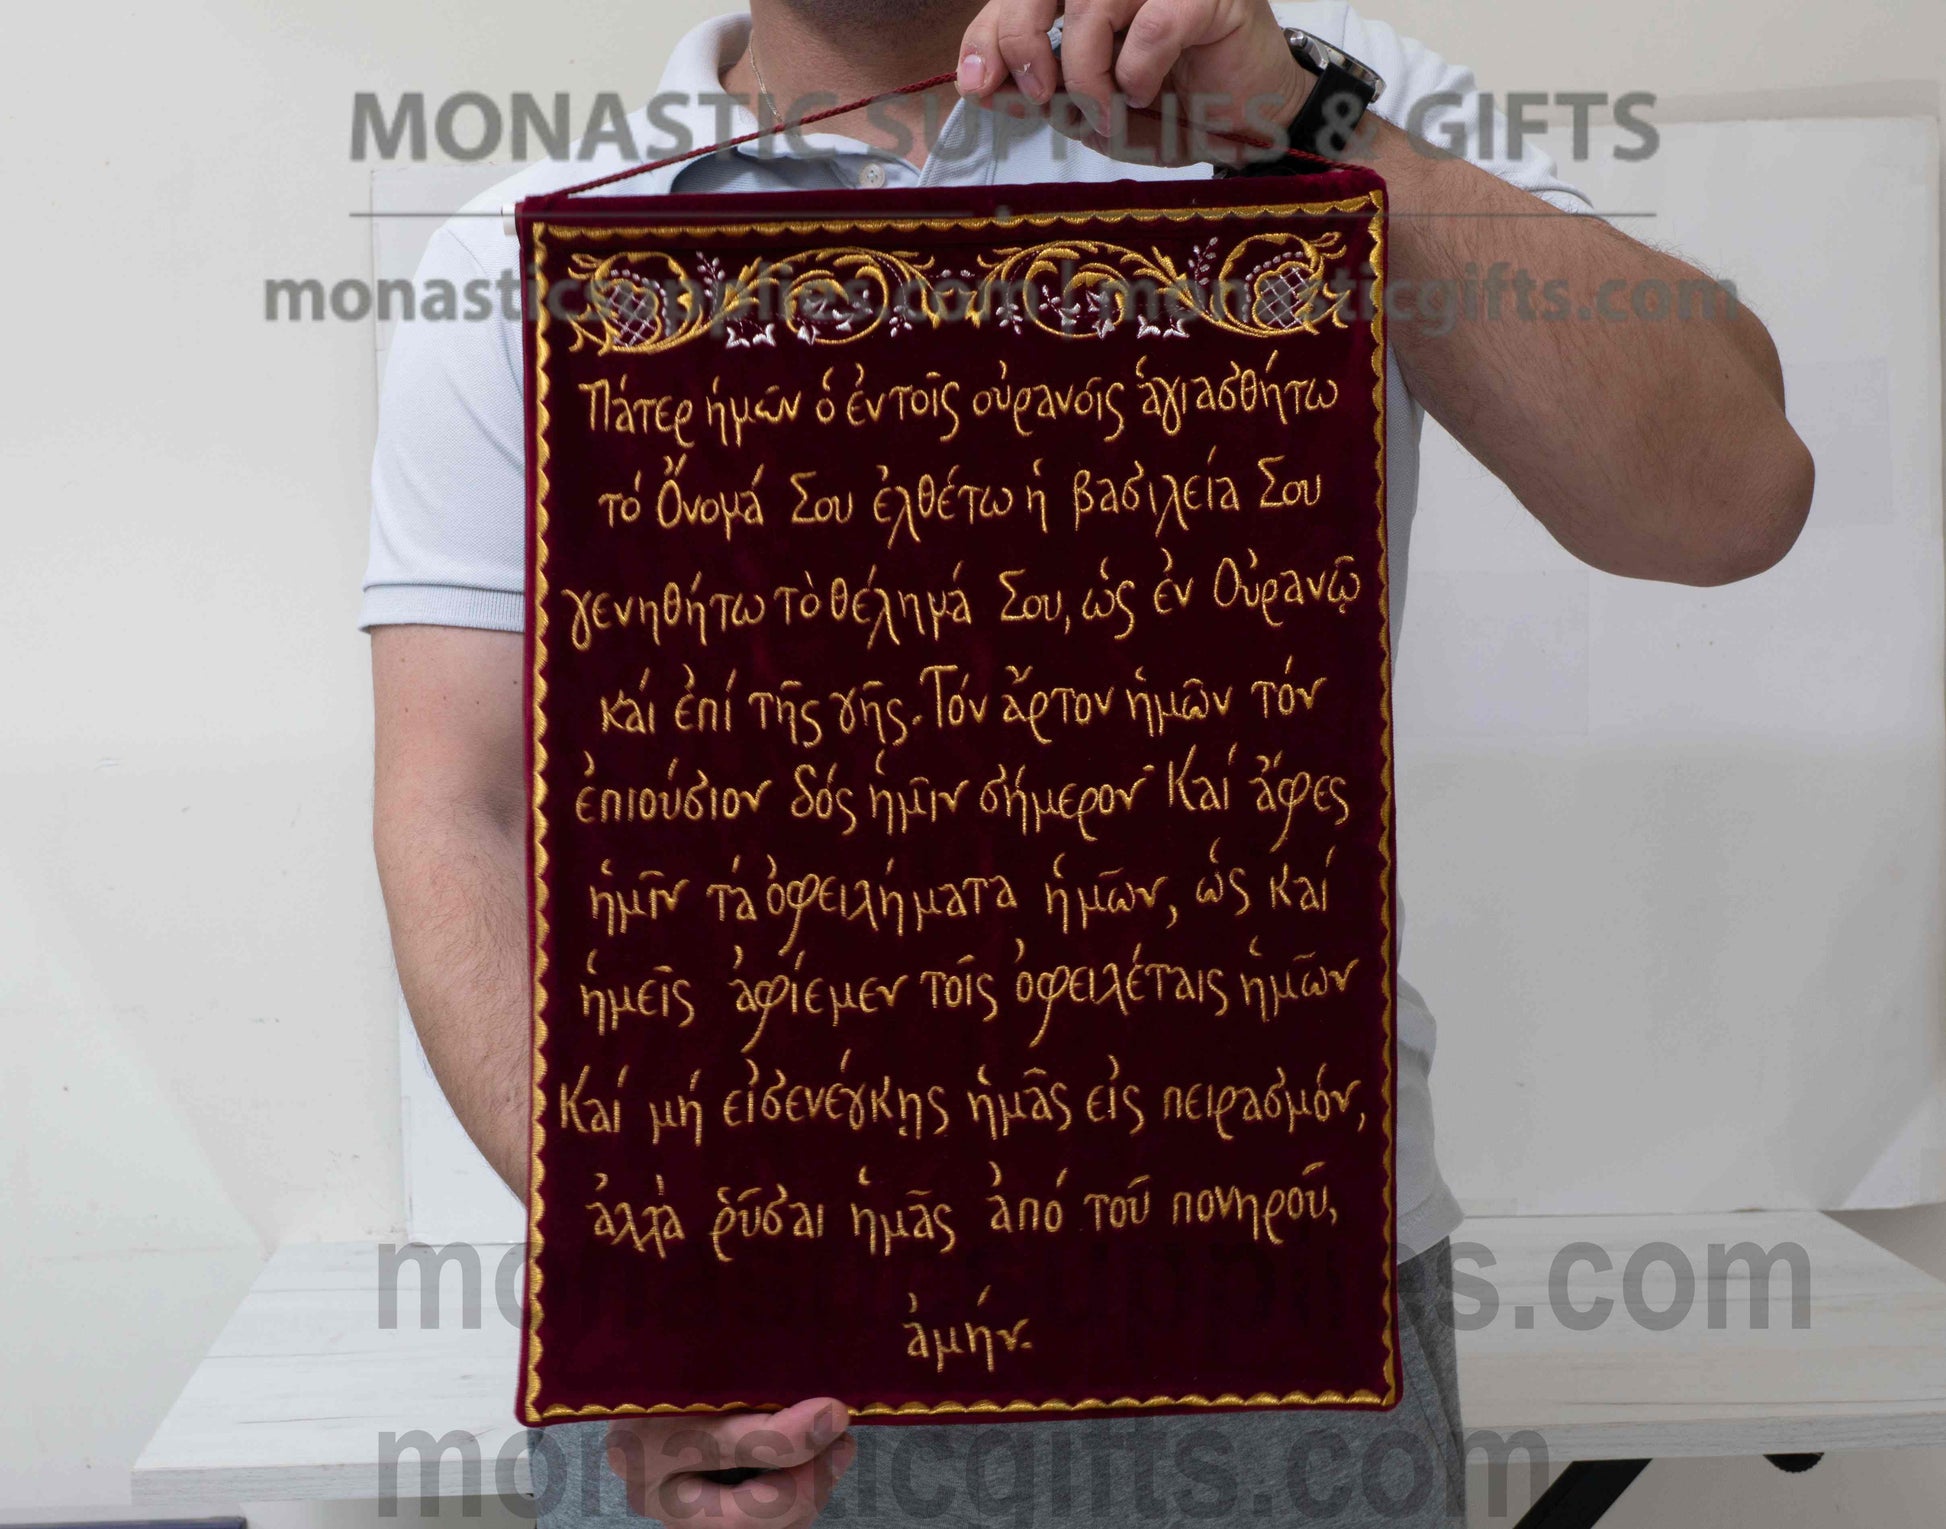 MONASTIC SUPPLIES & GIFTS
monasticsupplies.com | monasticgifts.com
Πάτερ ἡμῶν ὁ ἐν τοῖς οὐρανοῖς ἁγιασθήτω
τό Ὄνομά Σου ἐλθέτω ἡ βασιλεία Σου
γενηθήτω τὸ θέλημά Σου, ὡς ἐν Οὐρανῷ
καί ἐπί τῆς γῆς. Τόν ἄρτον ἡμῶν τόν
ἐπιούσιον δός ἡμῖν σήμερον Καί ἄφες
ἡμῖν τά ὀφειλήματα ἡμῶν, ὡς καί
ἡμεῖς ἀφίεμεν τοῖς ὀφειλέταις ἡμῶν
Καί μή εἰσενέγκῃς ἡμᾶς εἰς πειρασμόν,
ἀλλά ῥῦσαι ἡμᾶς ἀπό τοῦ πονηροῦ,
ἀμήν.
monasticsupplies.com
monasticgifts.com